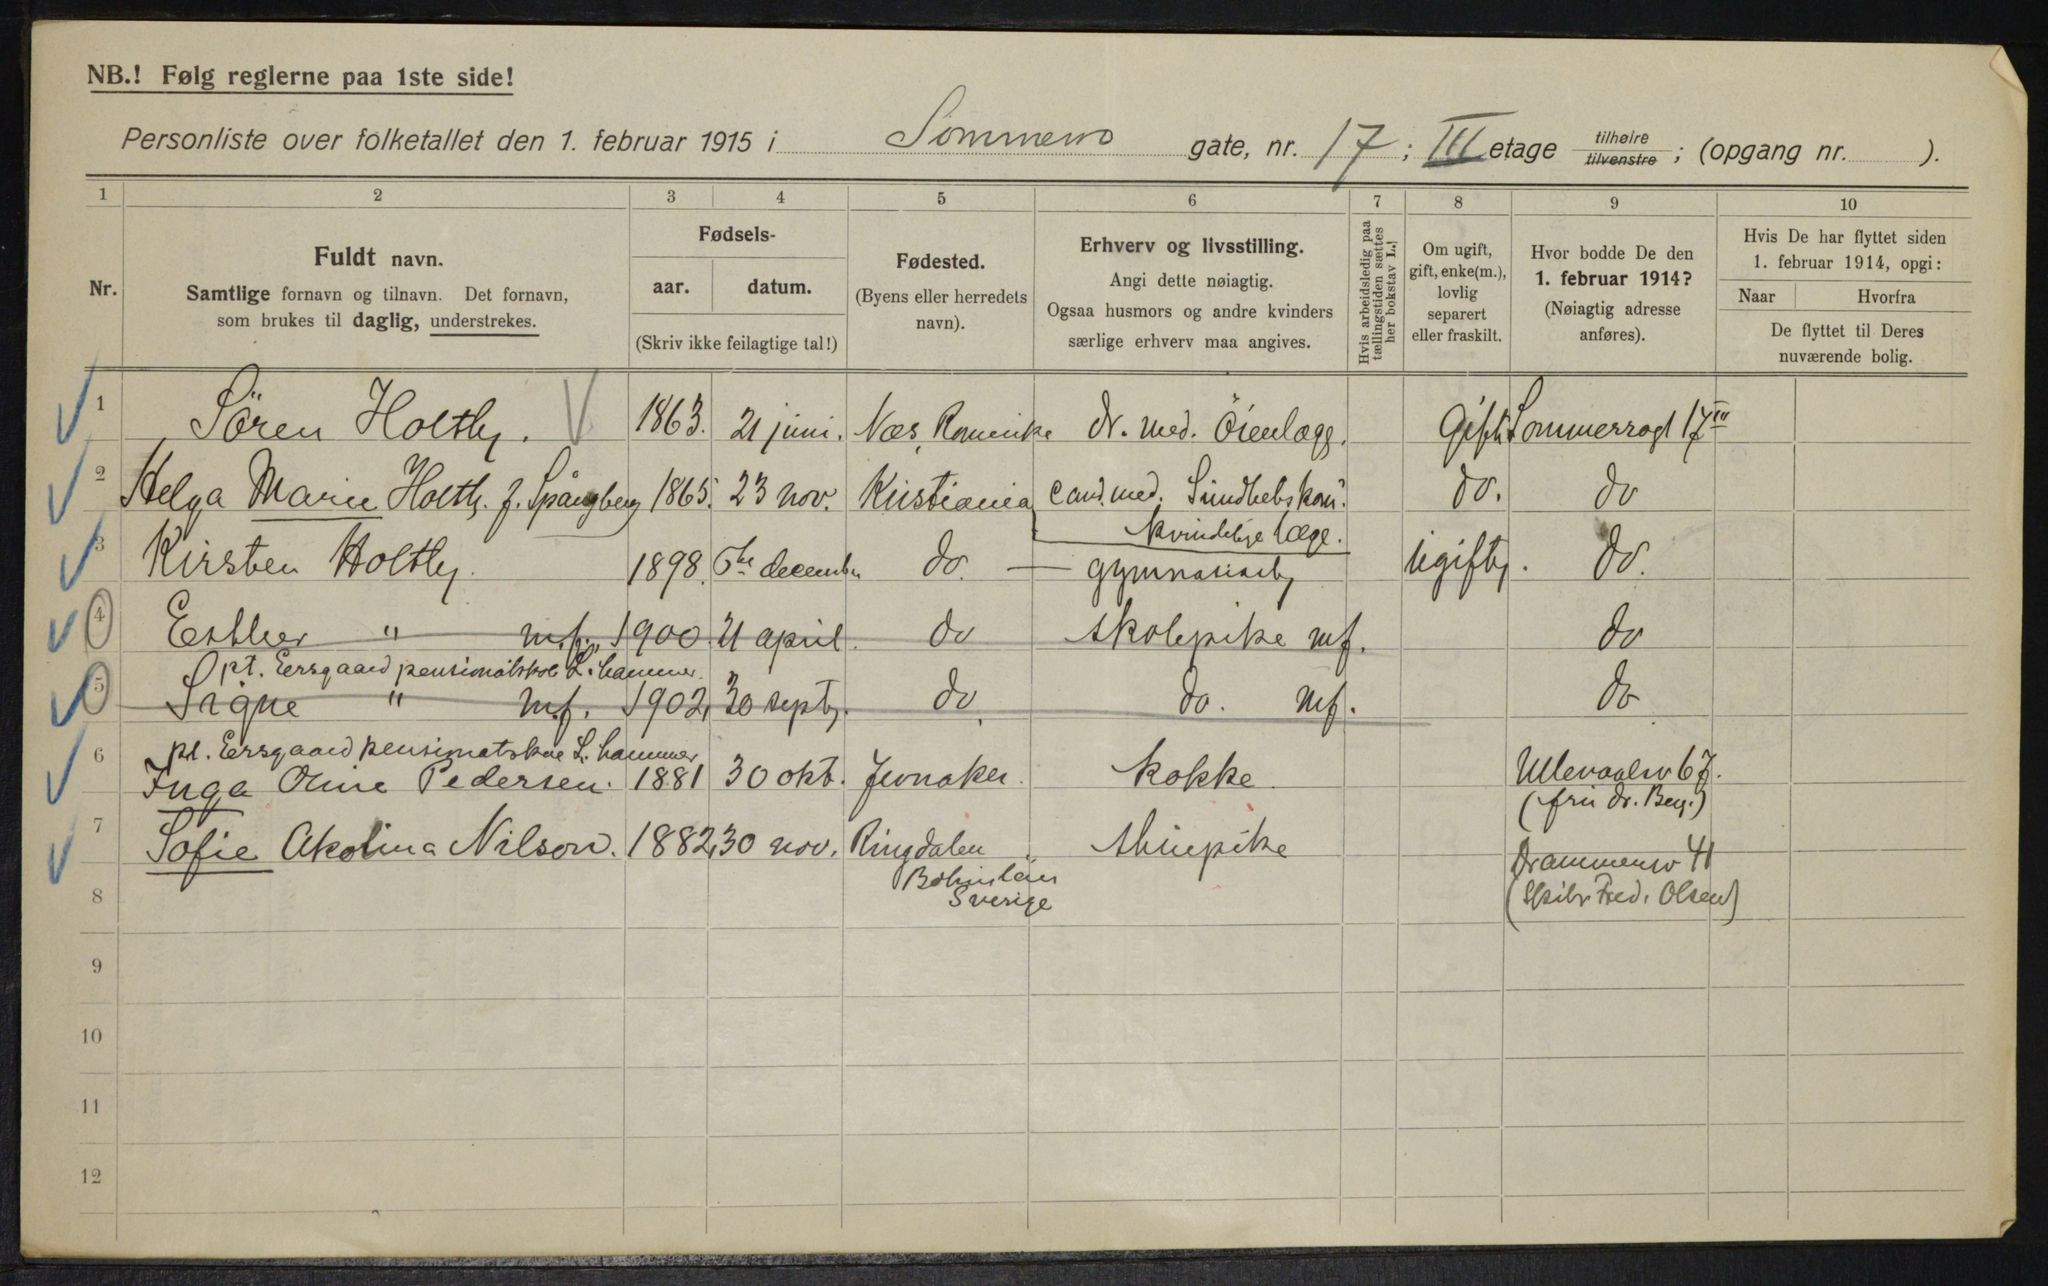 NB.! Følg reglerne paa 1ste side!
Personliste over folketallet den 1. februar 1915 i Sommerro gate, nr. 17; III etage tilhøire tilvenstre; (opgang nr. ).
1 2 3 4 5 6 7 8 9 10
Nr.
Fuldt navn.
Samtlige fornavn og tilnavn. Det fornavn,
som brukes til daglig, understrekes.
Fødsels-
aar. datum.
(Skriv ikke feilagtige tal!)
Fødested.
(Byens eller herredets
navn).
Erhverv og livsstilling.
Angi dette nøiagtig.
Ogsaa husmors og andre kvinders
særlige erhverv maa angives.
Hvis arbeidsledig paa
tællingstiden sættes
her bokstav L.!
Om ugift,
gift, enke(m.),
lovlig
separert
eller fraskilt.
Hvor bodde De den
1. februar 1914?
(Nøiagtig adresse
anføres).
Hvis De har flyttet siden
1. februar 1914, opgi:
Naar Hvorfra
De flyttet til Deres
nuværende bolig.
1 Sören Holtby. 1863. 21 juni. Næs Romerike dr. med. Öienlæge. Gift Sommerrogt 17 III
2 Helga Marie Holtby. f. Spångberg 1865. 23 nov. Kristiania cand. med. do. do
kvindelige læge.
3 Kirsten Holtby. 1898. 5te december do. — gymnasiast ugift. do.
4 Esther " m.f. 1900. 21 april. do skolepike mf. do
pt. Eersgaard pensionatskole L.hammer.
5 Signe " m.f. 1902, 30 septb. do do. mf. do
pt. Eersgaard pensionatskole L.hammer
6 Inga Oline Pedersen. 1881 30 okt. Jevnaker. kokke. Ullevaalsv 67.
7 Sofie Akolina Nilson. 1882, 30 nov. Ringdalen stuepike Drammensv 41
Bohuslän
Sverige
(Skibsr Fred. Olsen)
8
9
10
11
12